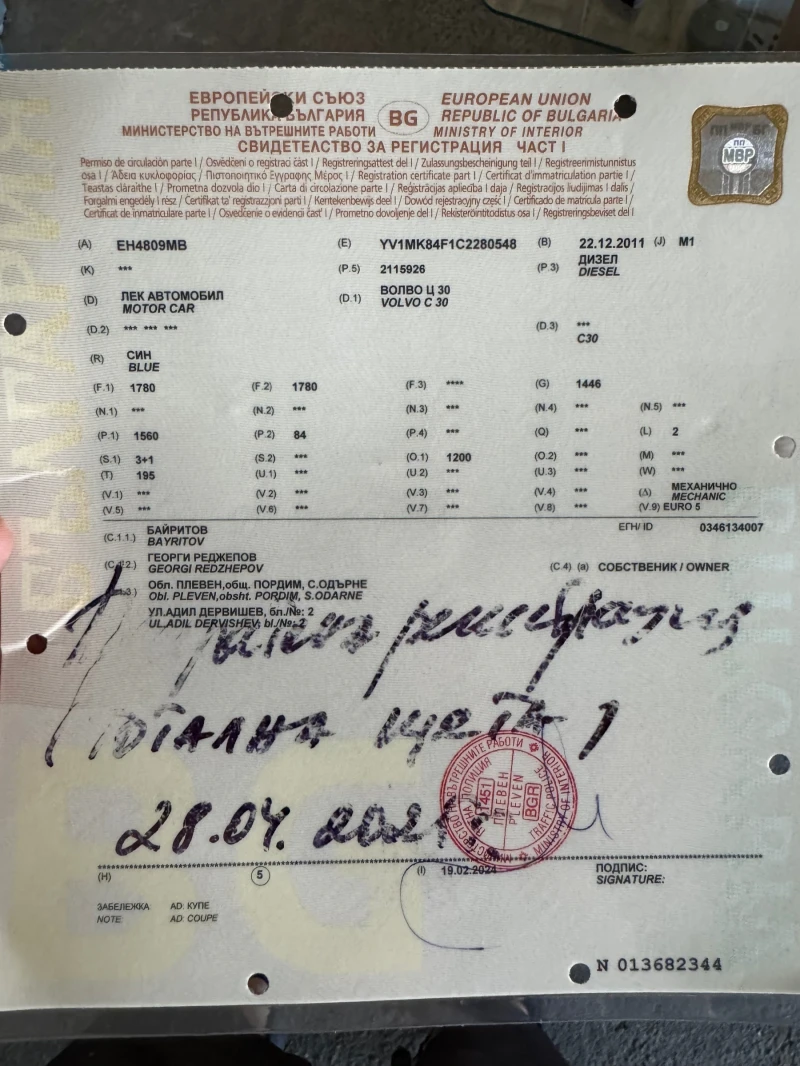 ЕВРОПЕЙСКИ СЪЮЗ
РЕПУБЛИКА БЪЛГАРИЯ
МИНИСТЕРСТВО НА ВЪТРЕШНИТЕ РАБОТИ
BG
EUROPEAN UNION
REPUBLIC OF BULGARIA
MINISTRY OF INTERIOR
СВИДЕТЕЛСТВО ЗА РЕГИСТРАЦИЯ ЧАСТ I
ПП МВР
Permiso de circulación parte I / Osvědčení o registraci část I / Registreringsattest del I / Zulassungsbescheinigung teil I / Registreerimistunnistus
osa I / Άδεια κυκλοφορίας / Πιστοποιητικό Εγγραφης Μέρος I / Registration certificate part I / Certificat d'immatriculation partie I /
Teastas cláraithe I / Prometna dozvola dio I / Carta di circolazione parte I / Reģistrācijas apliecība I daļa / Registracijos liudijimas I dalis /
Forgalmi engedély I rész / Certifikat ta' registrazzjoni parti I / Kentekenbewijs deel I / Dowód rejestracyjny część I / Certificado de matrícula parte I /
Certificat de inmatriculare parte I / Osvedčenie o evidencii časť I / Prometno dovoljenje del I / Rekisteröintitodistus osa I / Registreringsbeviset del I
(A) EH4809MB (E) YV1MK84F1C2280548 (B) 22.12.2011 (J) M1
(K) *** (P.5) 2115926 (P.3) ДИЗЕЛ
DIESEL
(D) ЛЕК АВТОМОБИЛ (D.1) ВОЛВО Ц 30
MOTOR CAR VOLVO C 30
(D.2) *** *** *** (D.3) ***
C30
(R) СИН
BLUE
(F.1) 1780 (F.2) 1780 (F.3) **** (G) 1446
(N.1) *** (N.2) *** (N.3) *** (N.4) *** (N.5) ***
(P.1) 1560 (P.2) 84 (P.4) *** (Q) *** (L) 2
(S.1) 3+1 (S.2) *** (O.1) 1200 (O.2) *** (M) ***
(T) 195 (U.1) *** (U.2) *** (U.3) *** (W) ***
(V.1) *** (V.2) *** (V.3) *** (V.4) *** (Δ) МЕХАНИЧНО
MECHANIC
(V.5) *** (V.6) *** (V.7) *** (V.8) *** (V.9) EURO 5
(C.1.1.) БАЙРИТОВ ЕГН/ ID 0346134007
BAYRITOV
ГЕОРГИ РЕДЖЕПОВ
GEORGI REDZHEPOV (C.4) (a) СОБСТВЕНИК / OWNER
Обл. ПЛЕВЕН,общ. ПОРДИМ, С.ОДЪРНЕ
Obl. PLEVEN,obsht. PORDIM, S.ODARNE
УЛ.АДИЛ ДЕРВИШЕВ, бл./№: 2
UL.ADIL DERVISHEV, bl./№: 2
тотална щета
28.04.
МИНИСТЕРСТВО НА ВЪТРЕШНИТЕ РАБОТИ
1451
ПЛЕВЕН
PLEVEN
BGR
TRAFFIC POLICE
MINISTRY OF INTERIOR
(H) 5 (I) 19.02.2024 ПОДПИС:
SIGNATURE:
ЗАБЕЛЕЖКА AD: КУПЕ
NOTE: AD: COUPE
N 013682344